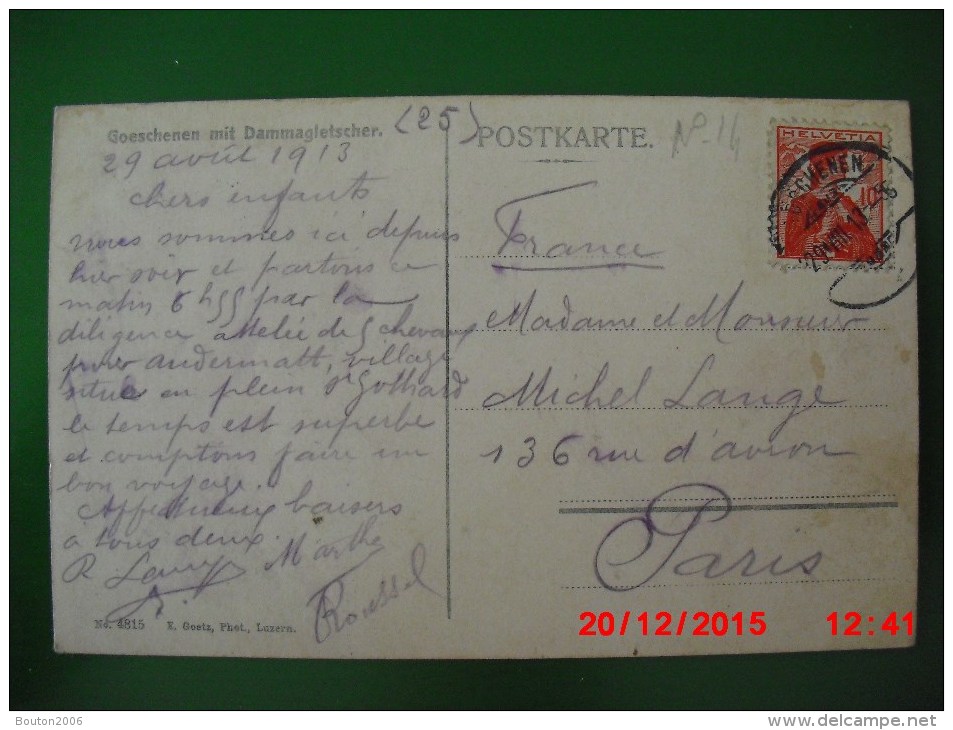 Goeschenen mit Dammagletscher.
(25)
POSTKARTE.
No 14
HELVETIA
29 août 1913
chers enfants
nous sommes ici depuis
hier soir et partons ce
matin 6 h 55 par la
diligence attelée de 5 chevaux
pour andermatt, village
situé en plein St Gothard
le temps est superbe
et comptons faire un
bon voyage.
Affectueux baisers
a tous deux.
Marthe
Roussel
France
Madame et Monsieur
Michel Lange
136 rue d'avron
Paris
No. 4815 E. Goetz, Phot., Luzern.
20/12/2015 12:41
Bouton2006
www.delcampe.net